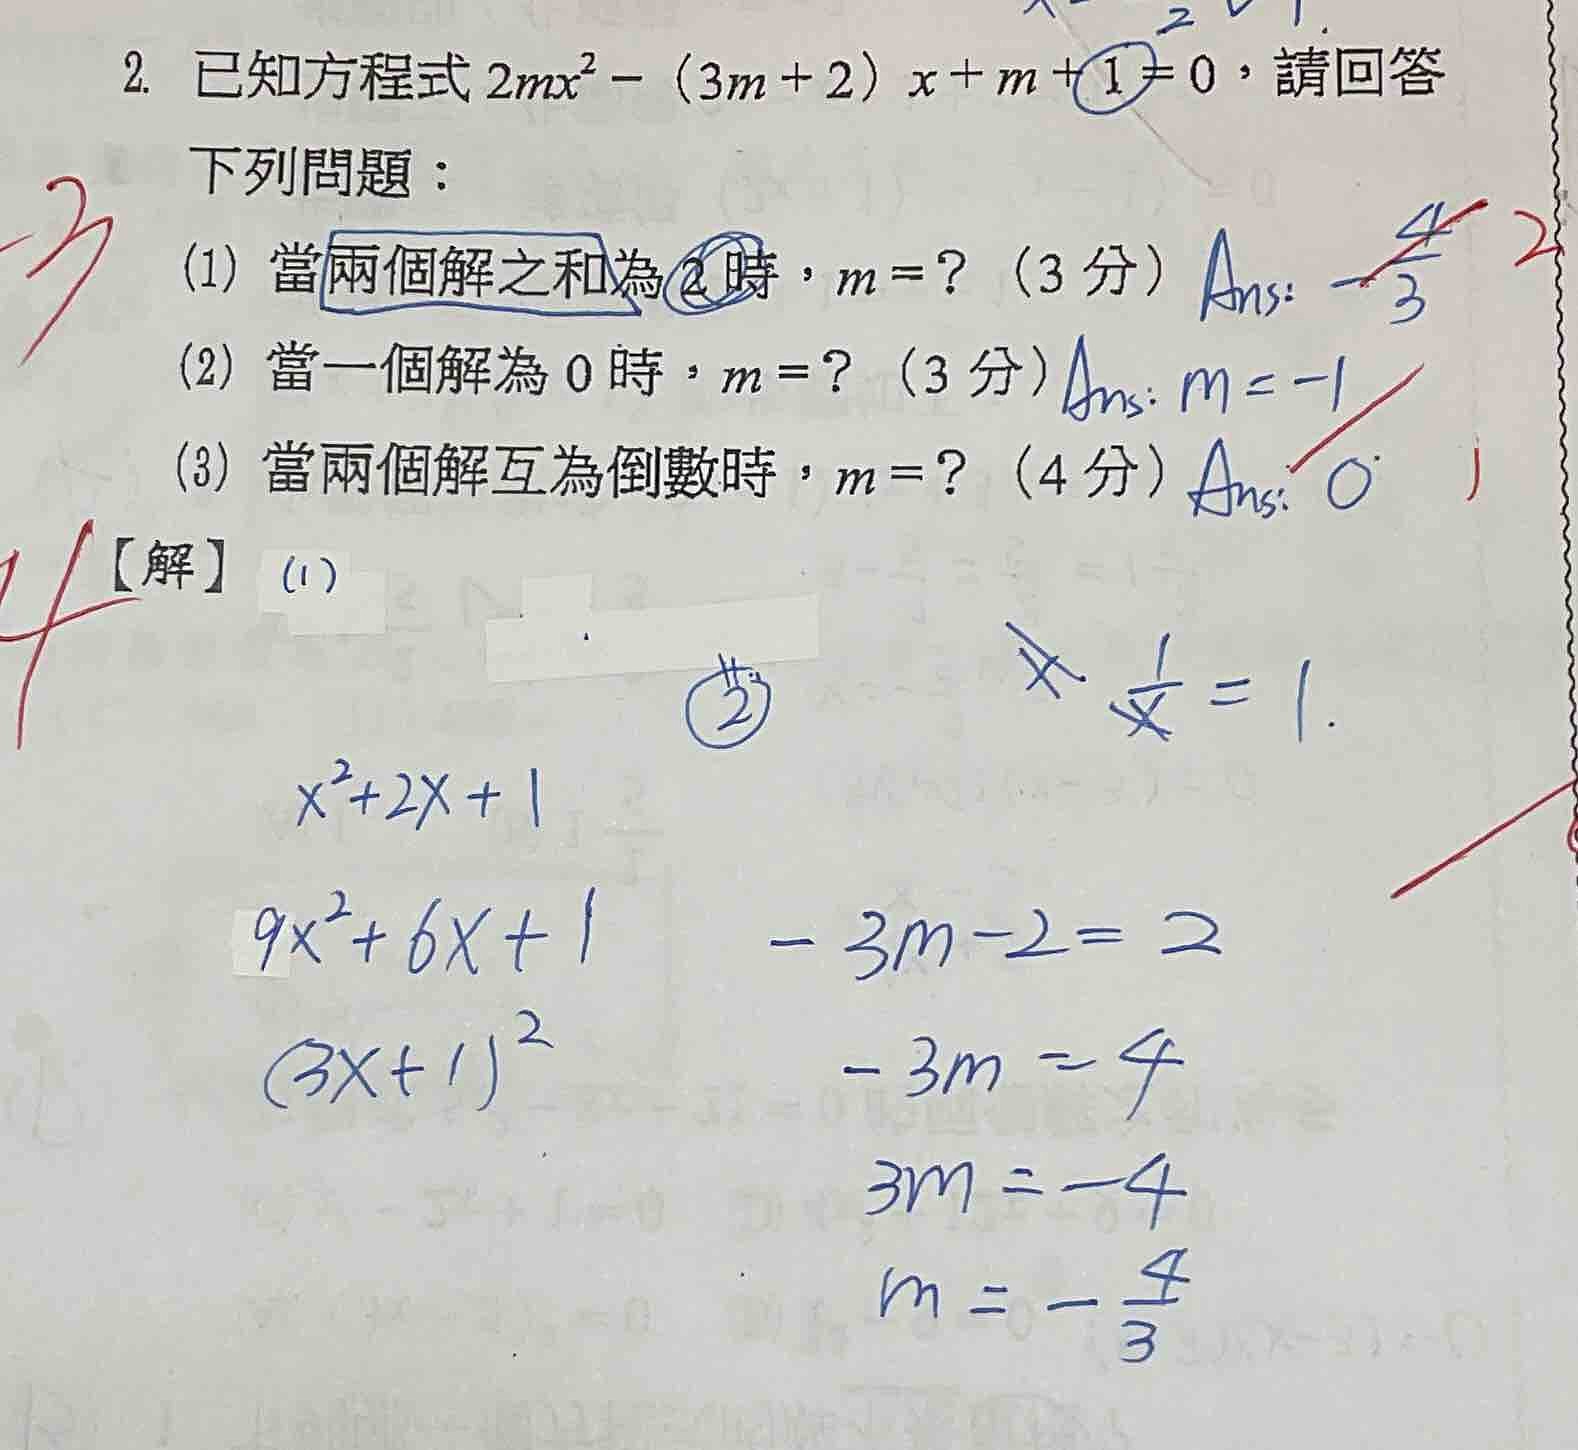 2. 已知方程式 2mx² - (3m + 2) x + m + 1 = 0，請回答
下列問題：
-3
(1) 當兩個解之和為 2 時，m = ？（3 分） Ans: -4/3 2
(2) 當一個解為 0 時，m = ？（3 分） Ans: m = -1
(3) 當兩個解互為倒數時，m = ？（4 分） Ans: 0 1
【解】 (1)
-4
2
1/x = 1.
x² + 2x + 1
9x² + 6x + 1
-3m - 2 = 2
(3x + 1)²
-3m = 4
3m = -4
m = -4/3